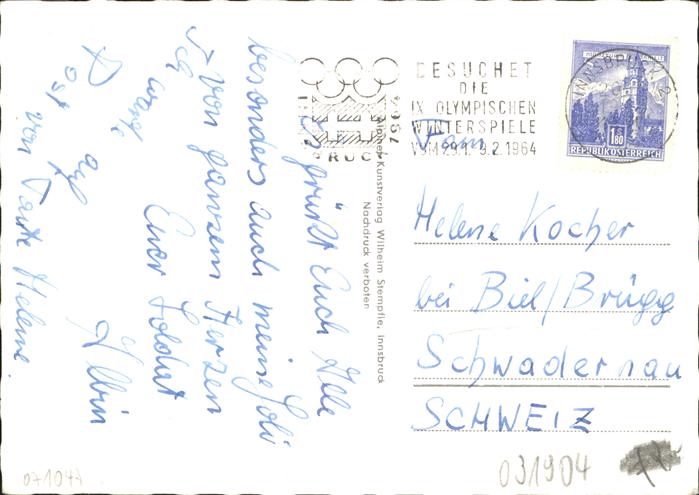 Es grüßt Euch Alle
besonders auch meine Loli
von ganzem Herzen
Euer Soldat
Albin
Ich warte
Post auf
von Tante Helene.
Tiroler Kunstverlag Wilhelm Stempfle, Innsbruck
Nachdruck verboten
BESUCHET
DIE
IX OLYMPISCHEN
WINTERSPIELE
VOM 29.1.-9.2.1964
INNSBRUCK 2
1.80
REPUBLIK ÖSTERREICH
Fam.
Helene Kocher
bei Biel/Brügg
Schwadernau
SCHWEIZ
071047
031904